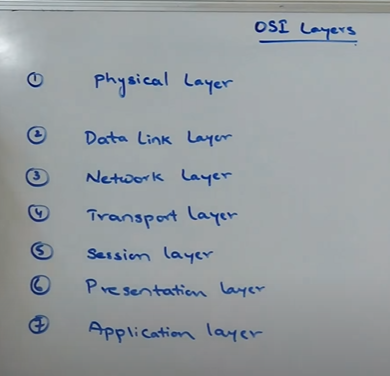 OSI Layers
① Physical Layer
② Data Link Layer
③ Network Layer
④ Transport layer
⑤ Session layer
⑥ Presentation layer
⑦ Application layer